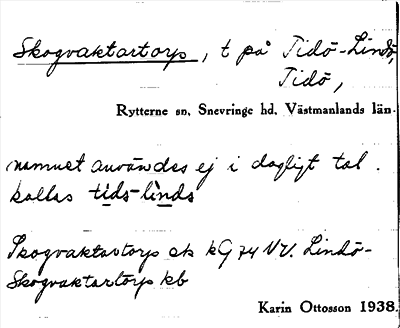 Skogvaktartorp, t på Tidö-Lindö,
Tidö,
Rytterne sn, Snevringe hd, Västmanlands län.
namnet användes ej i dagligt tal.
kallas tids-linds
Skogvaktartorp ek kG 74 NV. Lindö-
Skogvaktartorp kb
Karin Ottosson 1938.